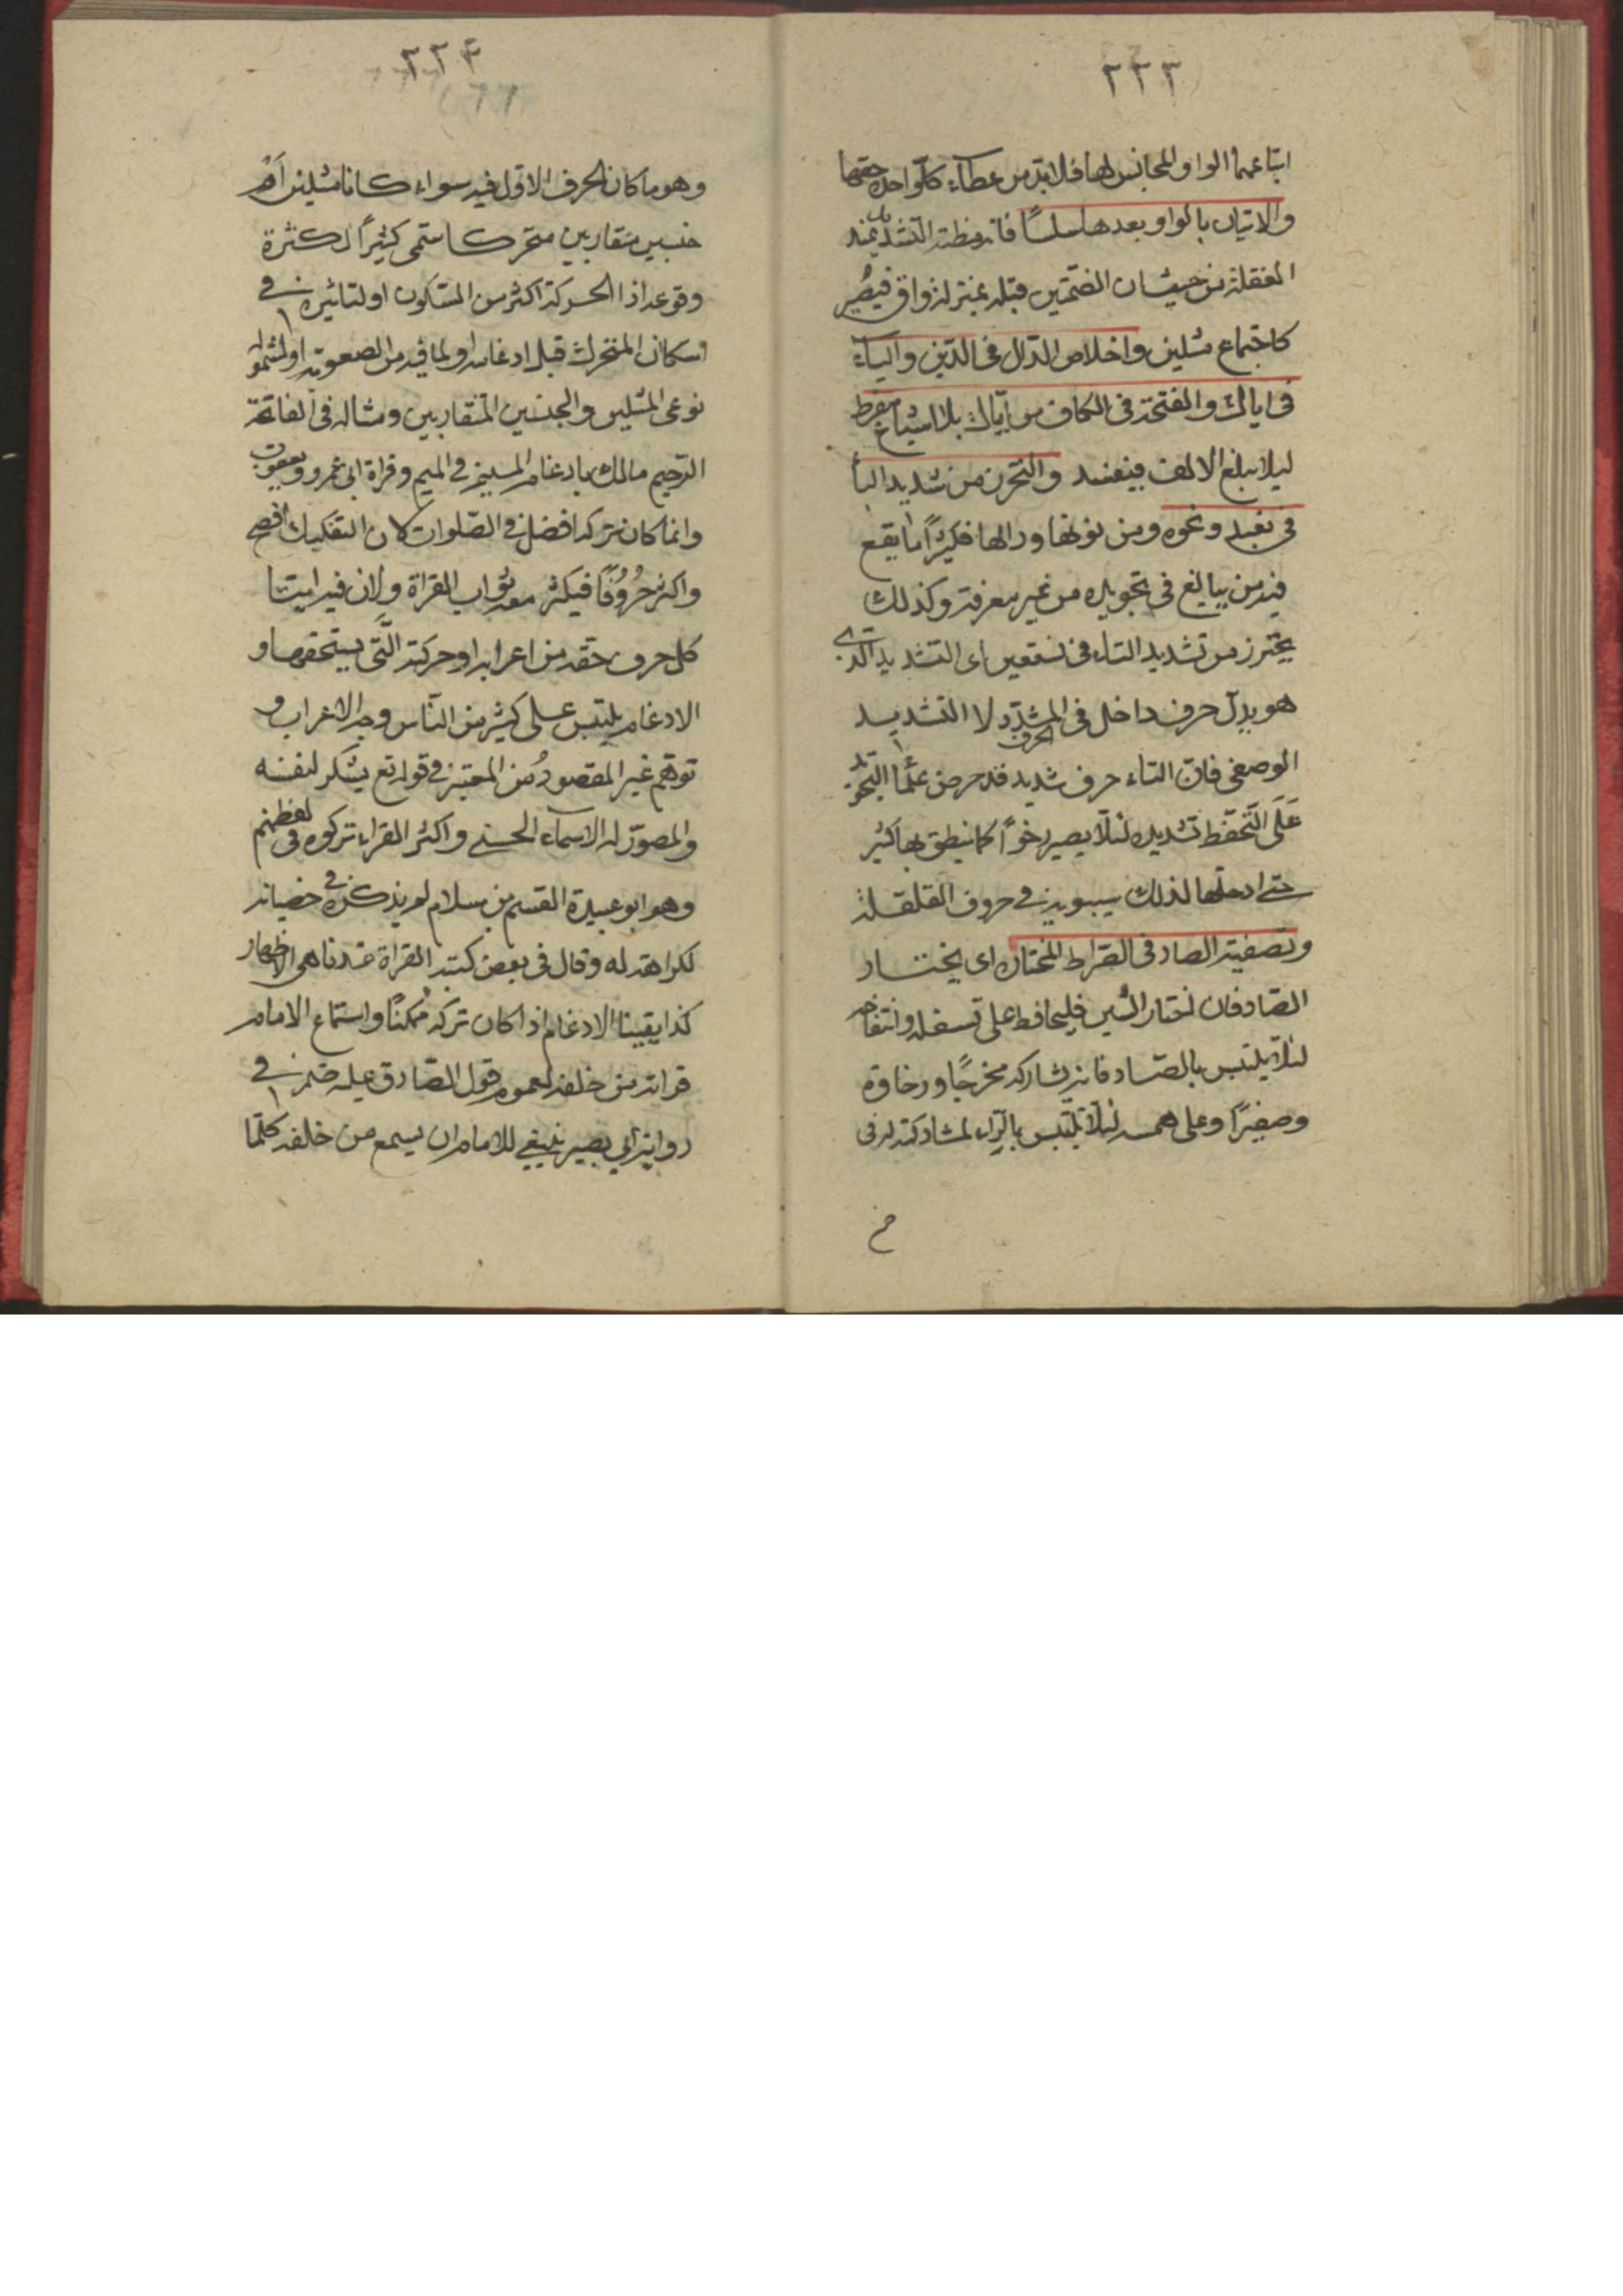 ٢٢٣
اتباعهما الواو المجانس لها فلا بد من عطاء كل واحد حقها
والاتيان بالواو بعدها سلسًا فانه مظنة التشديد عند
الغفلة من حيث ان الضمتين قبله بمنزلة واو فيصير
كاجتماع مثلين واخلاص الدال في الدين والياء
في اياك والفتحة في الكاف من اياك بلا اشباع مفرط
ليلا يبلغ الالف فيفسد والتحرز من تشديد البا
في نعبد ونحوه ومن نونها ودالها فكثيرًا ما يقع
فيه من يبالغ في تجويده من غير معرفة وكذلك
يحترز من تشديد التاء في نستعين اى التشديد الذى
هو بدل حرف داخل في الحرف المشدد لا التشديد
الوصفى فان التاء حرف شديد قد حرض علما التجويد
على التحفظ تشديده لئلا يصير رخوًا كما ينطق بها كثير
حتى ادخلها لذلك سيبويه في حروف القلقلة
وتصفية الصاد في الصراط المختاره اى يختار
الصاد فان اختار السين فليحافظ على تسفله وانتفاحه
لئلا يلتبس بالصاد فانه يشاركه مخرجًا ورخاوة
وصفيرًا وعلى همسه لئلا يلتبس بالزاء لمشاركته له في
٢٢٤
وهو ما كان الحرف الاول فيه سواء كانا مثلين ام
جنسين متقاربين متحركا سمى كثيرًا لكثرة
وقوعه اذ الحركة اكثر من السكون او لتاثيره في
اسكان المتحرك قبل ادغامه او لما فيه من الصعوبة او لشموله
نوعى المثلين والجنسين المتقاربين ومثاله في الفاتحة
الرحيم مالك بادغام الميم في الميم وقراة ابى عمرو ويعقوب
وانما كان تركه افضل في الصلوات لان التفكيك افصح
واكثر حُرُوفًا فيكثر معه ثواب القراة ولان فيه ايتا
كل حرف حقه من اعرابه او حركته التى يستحقها و
الادغام يلتبس على كثير من الناس وجه الاعراب و
توهم غير المقصود من المعنى في قوله تع يشكر لنفسه
والمصور له الاسماء الحسنى واكثر القراء تركوه في لفظهم
وهو ابو عبيدة القسم بن سلام لم يذكره في
لكراهته له وقال في بعض كتبه القراة عندنا هى الاظهار
الادغام اذا كان تركه ممكنًا واستماع الامام
قراته من خلفه لعموم قول الصادق عليه في
رواية ابى بصير ينبغى للامام ان يسمع من خلفه كلما